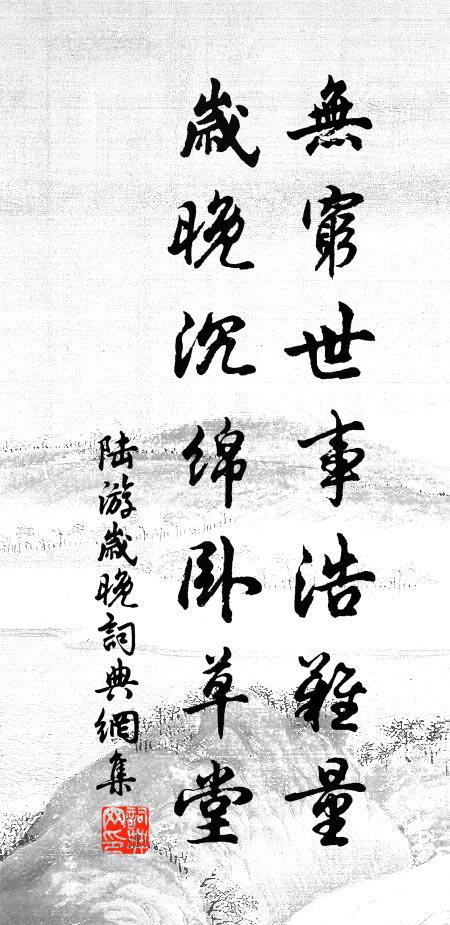 無窮世事浩難量
歳晚沉绵卧草堂
陆游歳晚詞典網集